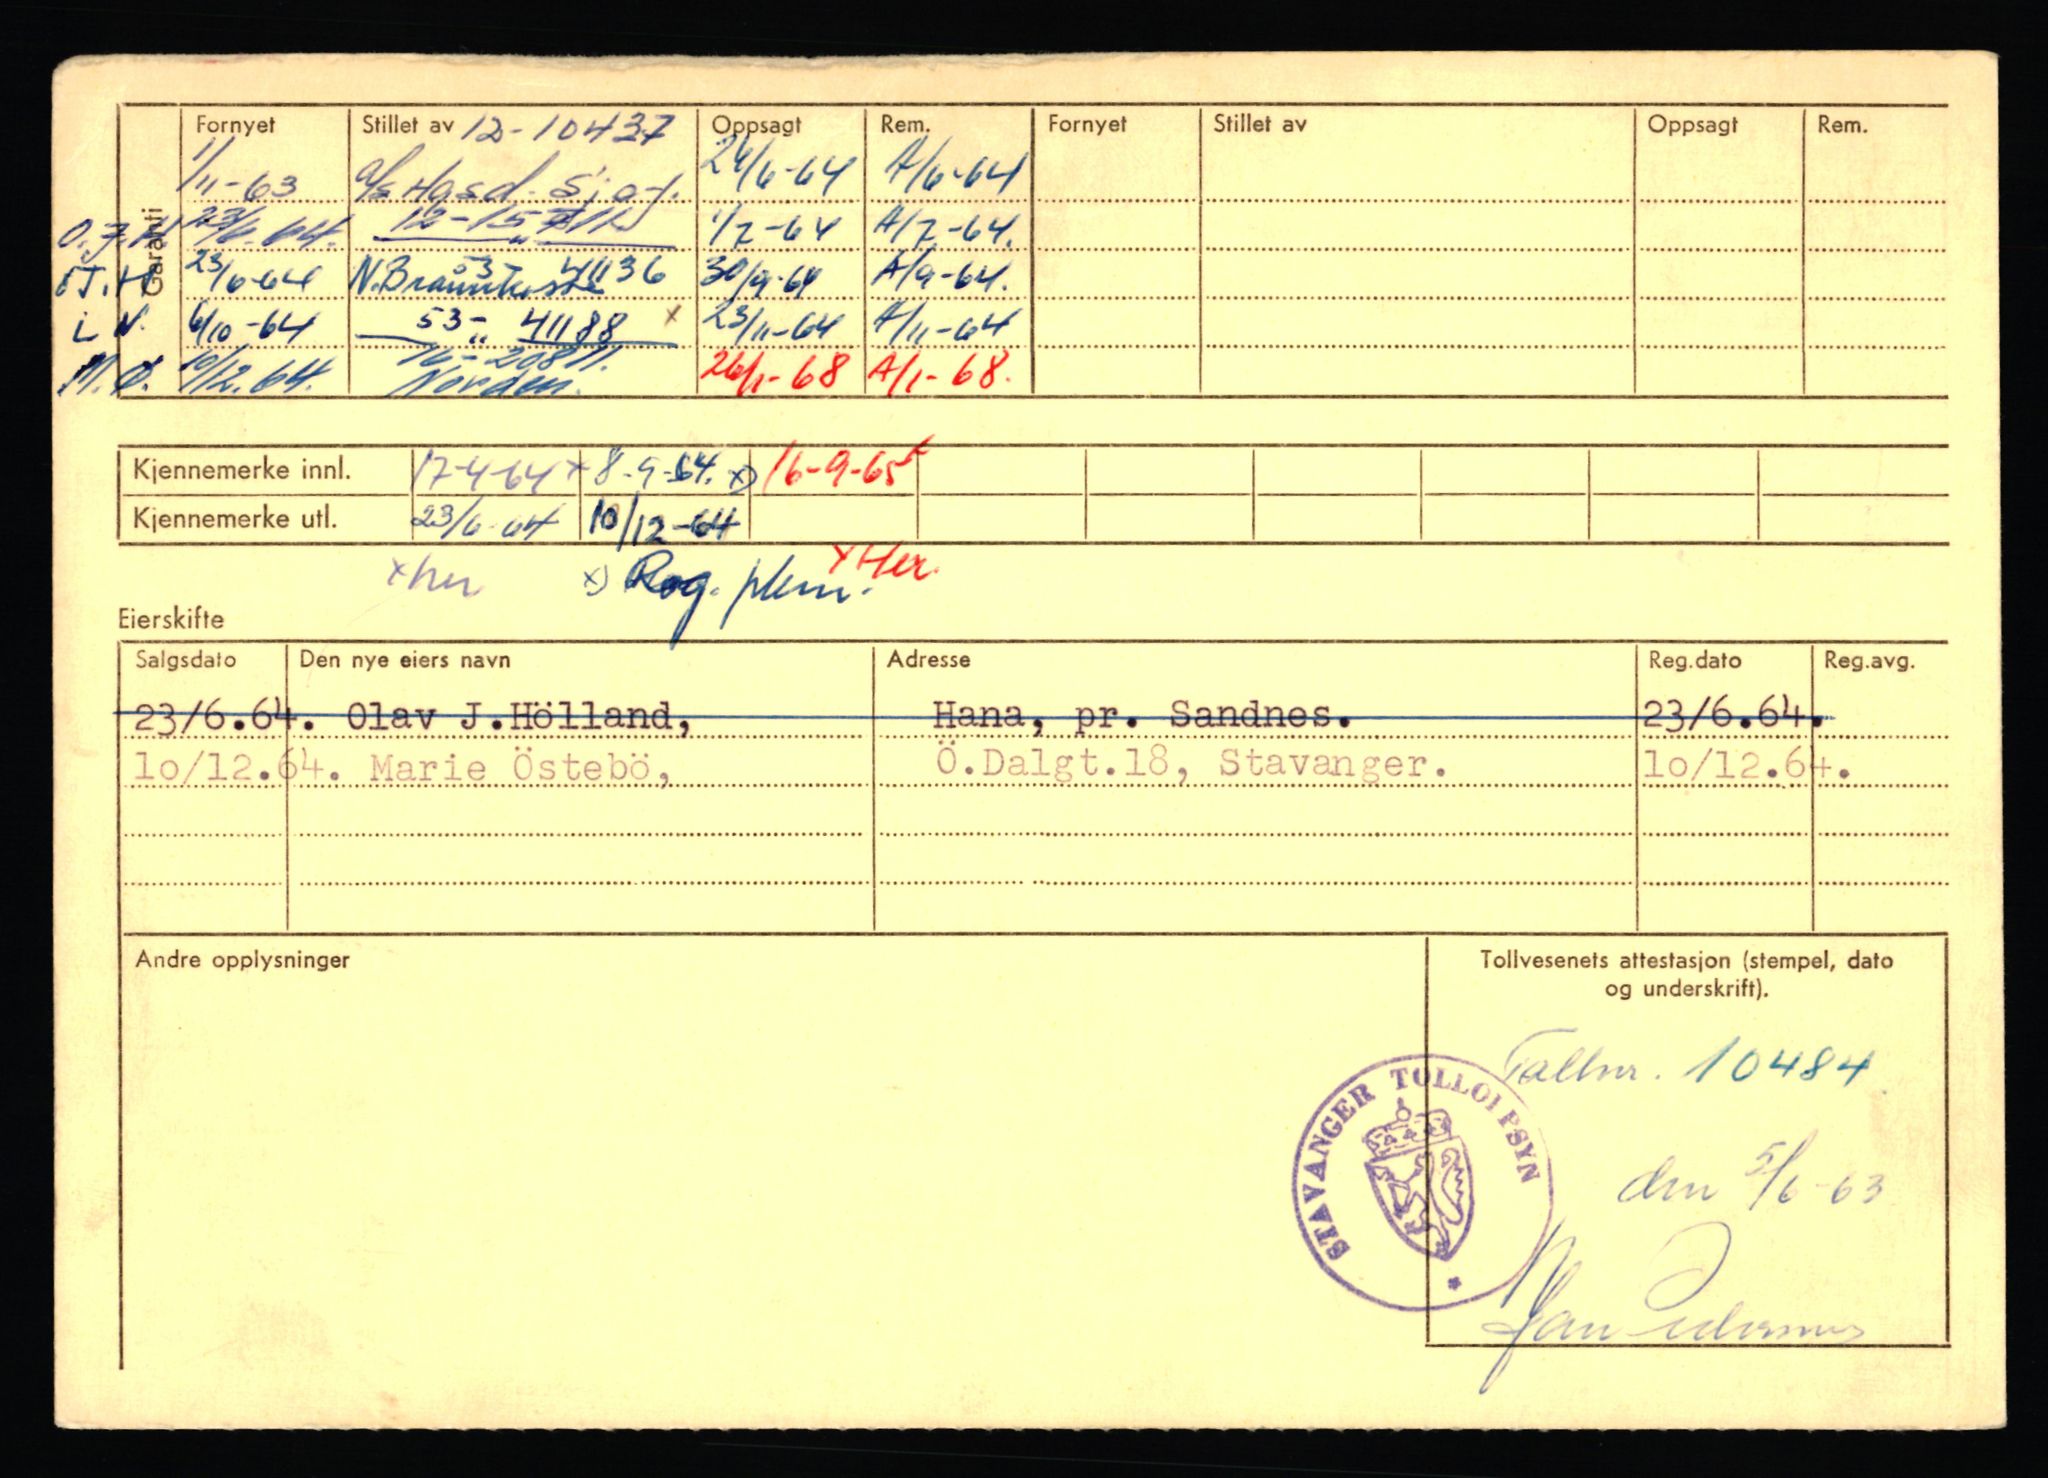 Garanti
Fornyet Stillet av 12-10437 Oppsagt Rem. Fornyet Stillet av Oppsagt Rem.
1/11-63 24/6-64 A/6-64
23/6-64. 1/7-64 A/7-64.
23/6-64 53- 41136 30/9-64 A/9-64.
6/10-64 53- 41188 x 23/11-64 A/11-64
M.Ø. 10/12.64. Norden. 26/1-68 A/1-68.
Kjennemerke innl. 17-4-64 x 8-9-64. x) 16-9-65 x
Kjennemerke utl. 23/6-64 10/12-64
x her x) Rog. x Her.
Eierskifte
Salgsdato Den nye eiers navn Adresse Reg.dato Reg.avg.
23/6.64. Olav J.Hölland, Hana, pr. Sandnes. 23/6.64.
10/12.64. Marie Östebö, Ö.Dalgt.18, Stavanger. 10/12.64.
Andre opplysninger Tollvesenets attestasjon (stempel, dato
og underskrift).
Tallnr. 10484
STAVANGER TOLLOPPSYN
den 5/6-63
Jan